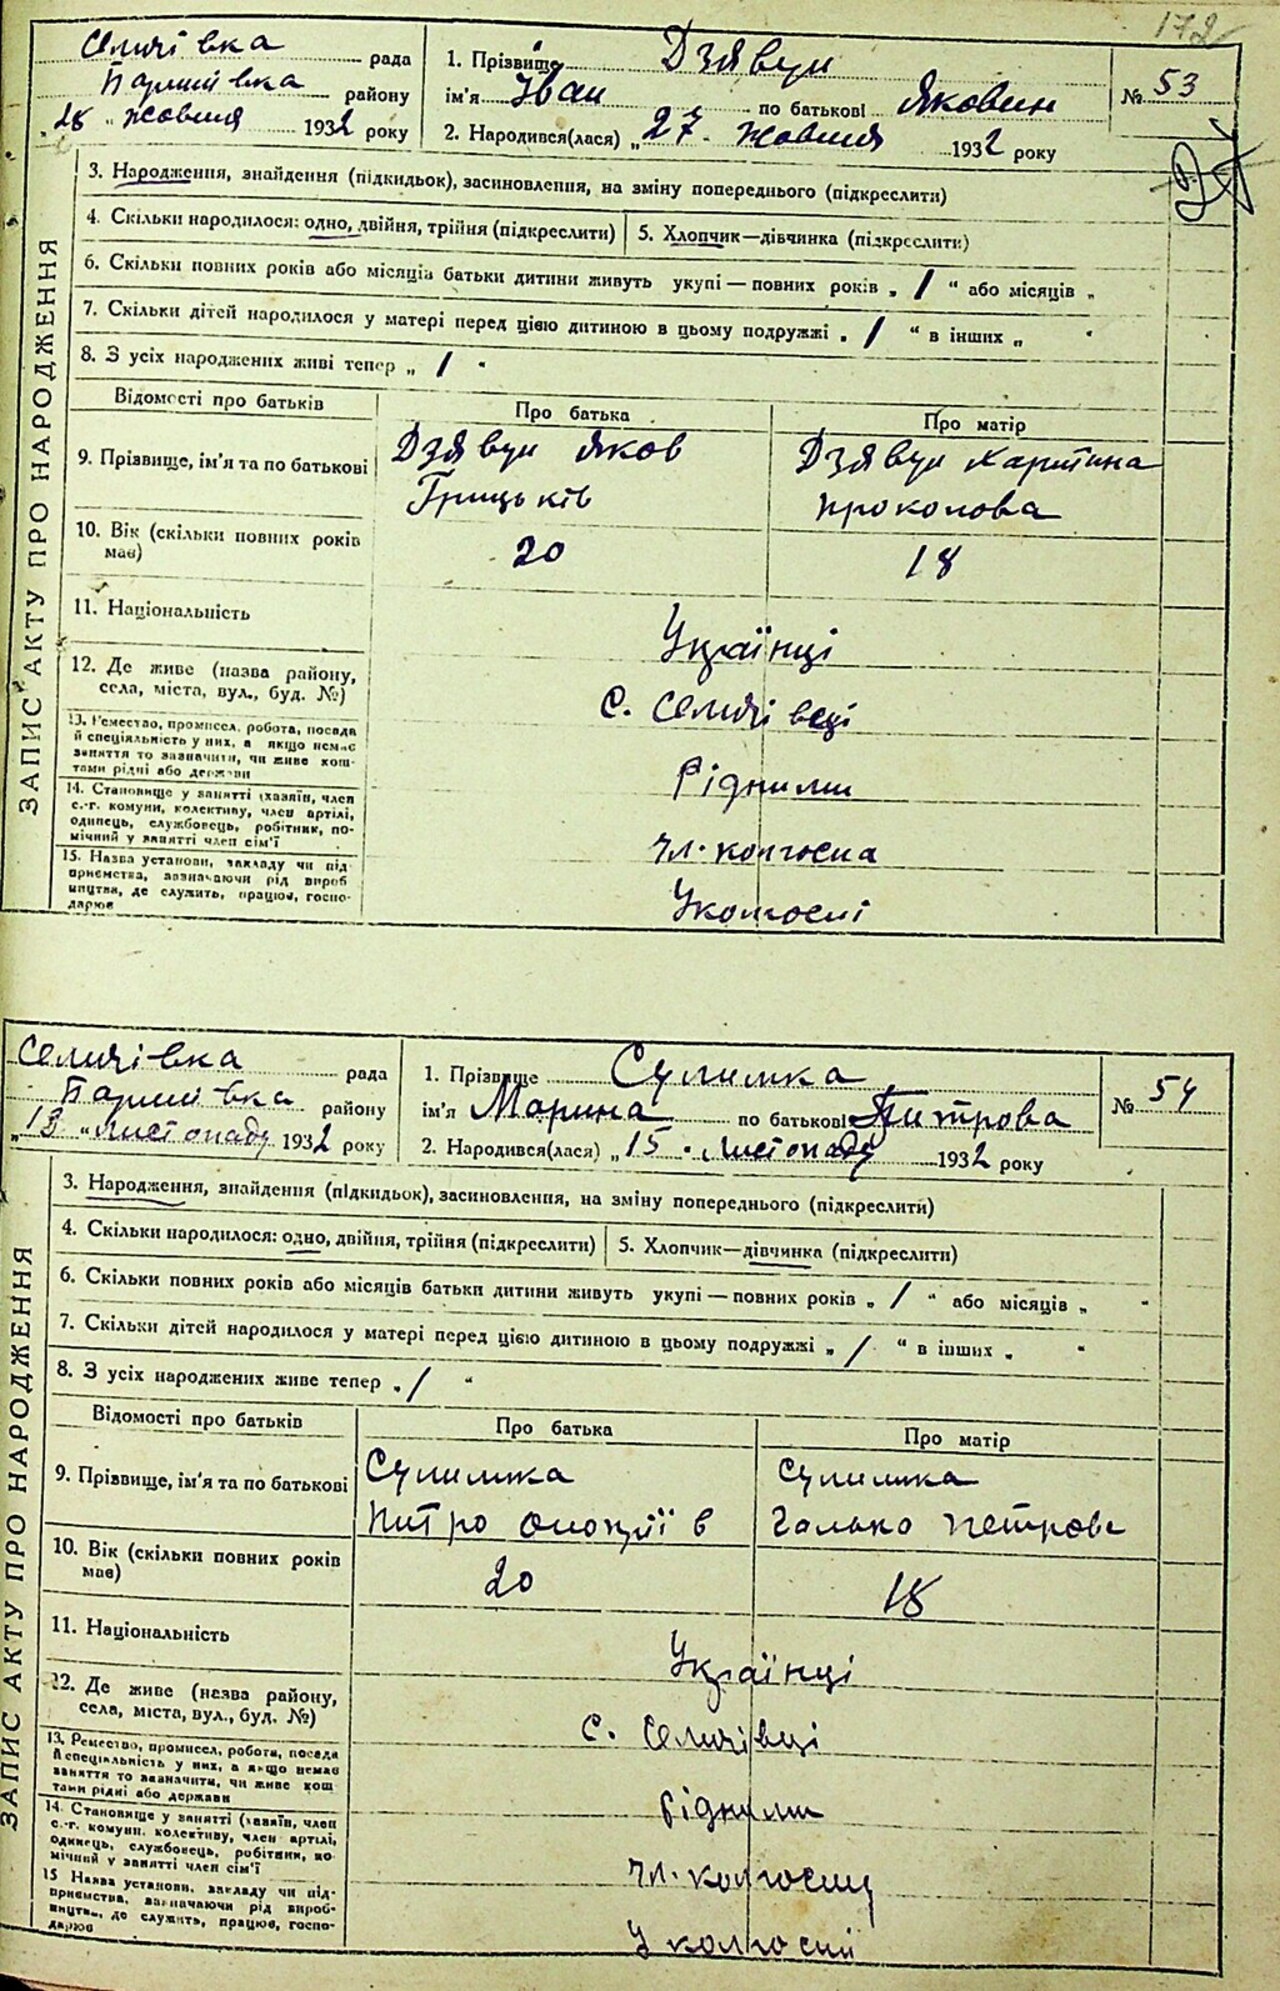 172
Селичівка рада
Баришівка району
"28" жовтня 1932 року
1. Прізвище Дзявун
ім'я Іван по батькові Яковин
2. Народився(лася) "27" жовтня 1932 року
№ 53
ЗАПИС АКТУ ПРО НАРОДЖЕННЯ
3. Народження, знайдення (підкидьок), засиновлення, на зміну попереднього (підкреслити)
4. Скільки народилося: одно, двійня, трійня (підкреслити) 5. Хлопчик—дівчинка (підкреслити)
6. Скільки повних років або місяців батьки дитини живуть укупі — повних років „ 1 “ або місяців „
7. Скільки дітей народилося у матері перед цією дитиною в цьому подружжі „ 1 “ в інших „ “
8. З усіх народжених живі тепер „ 1 “
Відомості про батьків Про батька Про матір
9. Прізвище, ім'я та по батькові Дзявун Яков Грицьків Дзявун Харитина Прокопова
10. Вік (скільки повних років має) 20 18
11. Національність Українці
12. Де живе (назва району, села, міста, вул., буд. №) с. Селичівці
13. Ремество, промисел, робота, посада й спеціяльність у них, а якщо немає заняття то зазначити, чи живе коштами рідні або держави Рідними
14. Становище у занятті (хазяїн, член с.-г. комуни, колективу, член артілі, одинець, службовець, робітник, помічний у занятті член сім'ї чл. колгоспа
15. Назва установи, закладу чи підприємства, зазначаючи рід виробництва, де служить, працює, господарює У колгоспі
Селичівка рада
Баришівка району
"13" листопаду 1932 року
1. Прізвище Сулимка
ім'я Марина по батькові Питрова
2. Народився(лася) „15“ листопаду 1932 року
№ 54
ЗАПИС АКТУ ПРО НАРОДЖЕННЯ
3. Народження, знайдення (підкидьок), засиновлення, на зміну попереднього (підкреслити)
4. Скільки народилося: одно, двійня, трійня (підкреслити) 5. Хлопчик—дівчинка (підкреслити)
6. Скільки повних років або місяців батьки дитини живуть укупі — повних років „ 1 “ або місяців „ “
7. Скільки дітей народилося у матері перед цією дитиною в цьому подружжі „ 1 “ в інших „ “
8. З усіх народжених живе тепер „ 1 “
Відомості про батьків Про батька Про матір
9. Прізвище, ім'я та по батькові Сулимка Питро Сулимка Галька Петрова
10. Вік (скільки повних років має) 20 18
11. Національність Українці
12. Де живе (назва району, села, міста, вул., буд. №) с. Селичівці
13. Ремество, промисел, робота, посада й спеціяльність у них, а якщо немає заняття то зазначити, чи живе коштами рідні або держави Рідними
14. Становище у занятті (хазяїн, член с.-г. комуни, колективу, член артілі, одинець, службовець, робітник, помічний у занятті член сім'ї чл. колгоспу
15 Назва установи, закладу чи підприємства, зазначаючи рід виробництва, де служить, працює, господарює У колгоспі